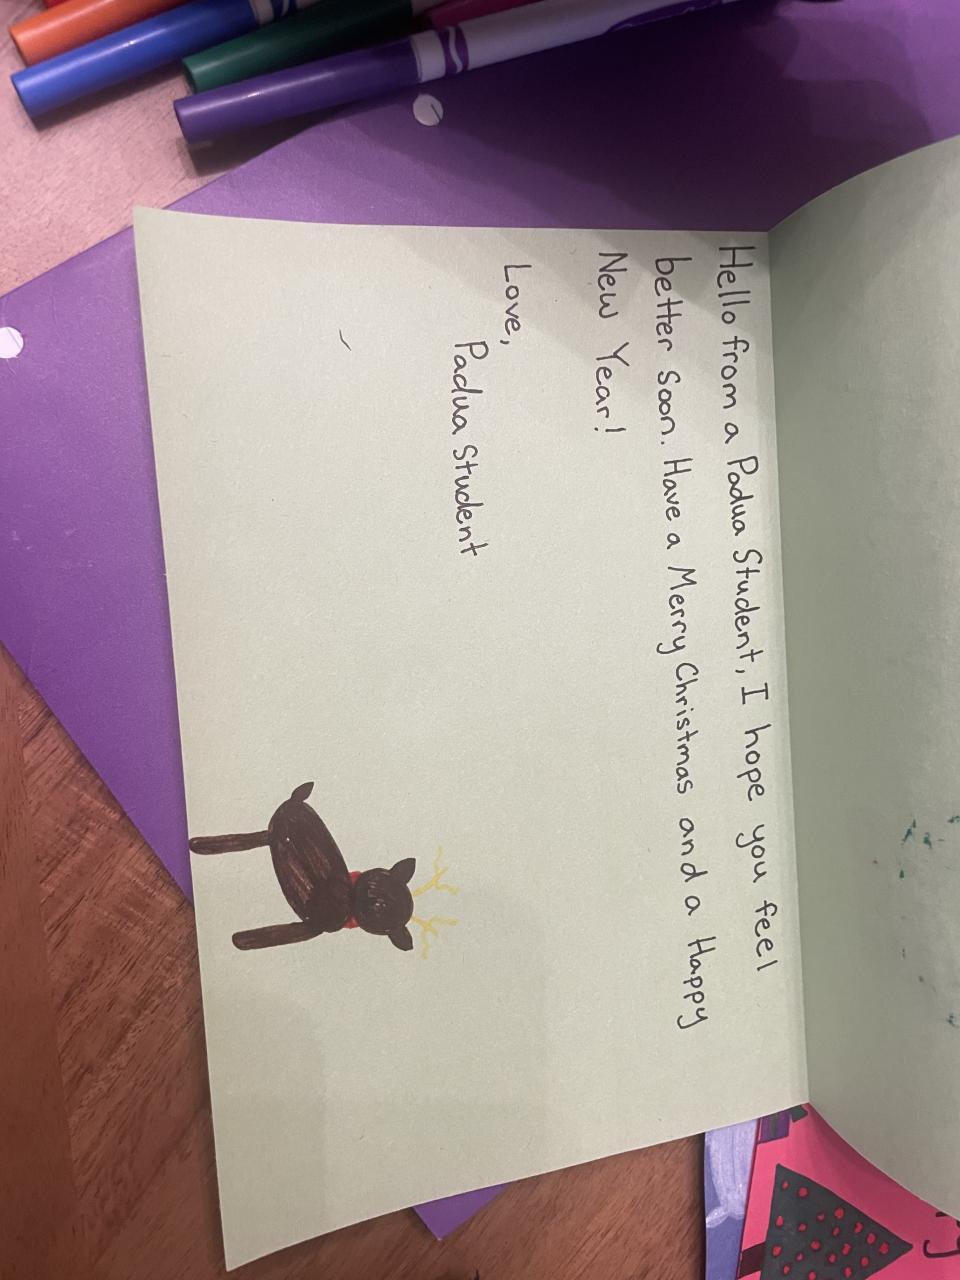 Hello from a Padua Student, I hope you feel
better soon. Have a Merry Christmas and a Happy
New Year!
Love,
Padua Student